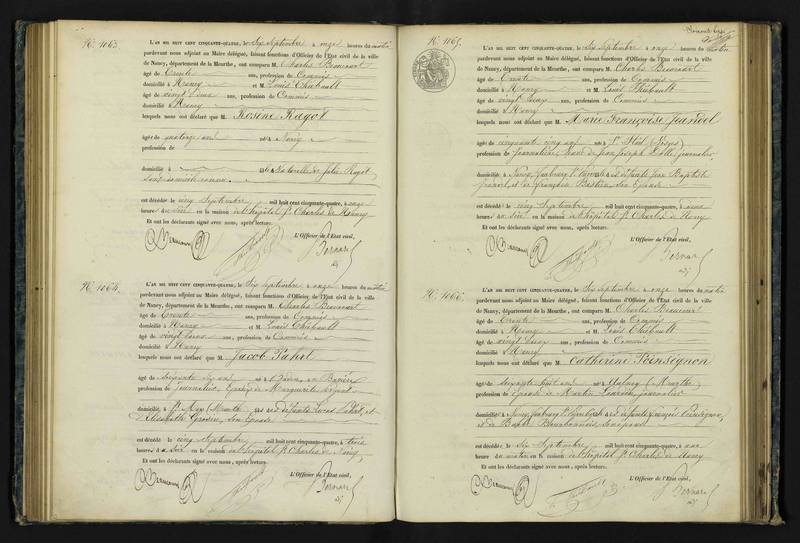 N° 1063.
L'AN MIL HUIT CENT CINQUANTE-QUATRE, le Six Septembre à onze heures du matin
pardevant nous adjoint au Maire délégué, faisant fonctions d'Officier de l'État civil de la ville
de Nancy, département de la Meurthe, ont comparu M. Charles
âgé de trente ans, profession de Commis
domicilié à Nancy et M. Louis Thiébault
âgé de vingt deux ans, profession de Commis
domicilié à Nancy
lesquels nous ont déclaré que M. Rosine Ragot
âgée de quatorze ans né à Nancy
profession de
domicilié à fille naturelle de Julie Ragot
sans domicile connu.
est décédé le cinq Septembre mil huit cent cinquante-quatre, à onze
heures du soir en la maison de l'hôpital St Charles de Nancy
Et ont les déclarants signé avec nous, après lecture.
L'Officier de l'État civil,
Bernard
adj
N° 1064.
L'AN MIL HUIT CENT CINQUANTE-QUATRE, le Six septembre à onze heures du matin
pardevant nous adjoint au Maire délégué, faisant fonctions d'Officier de l'État civil de la ville
de Nancy, département de la Meurthe, ont comparu M. Charles
âgé de trente ans, profession de Commis
domicilié à Nancy et M. Louis Thiébault
âgé de vingt deux ans, profession de Commis
domicilié à Nancy
lesquels nous ont déclaré que M. Jacob Pahrt
âgé de soixante six ans né à en Bavière
profession de journalier, époux de Marguerite
domicilié à St Max, Meurthe fils de défunts et
Elisabeth son épouse
est décédé le cinq Septembre mil huit cent cinquante-quatre, à trois
heures du soir en la maison de l'hôpital St Charles de Nancy
Et ont les déclarants signé avec nous, après lecture.
L'Officier de l'État civil,
Bernard
adj
N° 1065.
L'AN MIL HUIT CENT CINQUANTE-QUATRE, le Six Septembre à onze heures du matin
pardevant nous adjoint au Maire délégué, faisant fonctions d'Officier de l'État civil de la ville
de Nancy, département de la Meurthe, ont comparu M. Charles
âgé de trente ans, profession de Commis
domicilié à Nancy et M. Louis Thiébault
âgé de vingt deux ans, profession de Commis
domicilié à Nancy
lesquels nous ont déclaré que M. Marie Françoise Jeandol
âgé de cinquante cinq ans né à St Dié (Vosges)
profession de journalière, veuve de Jean Joseph journalier
domicilié à Nancy, faubourg fille de défunts Jean Baptiste
et de Françoise son épouse
est décédé le cinq Septembre mil huit cent cinquante-quatre, à onze
heures du soir en la maison de l'hôpital St Charles de Nancy
Et ont les déclarants signé avec nous, après lecture.
L'Officier de l'État civil,
Bernard
adj
N° 1066.
L'AN MIL HUIT CENT CINQUANTE-QUATRE, le Six septembre à onze heures du matin
pardevant nous adjoint au Maire délégué, faisant fonctions d'Officier de l'État civil de la ville
de Nancy, département de la Meurthe, ont comparu M. Charles
âgé de trente ans, profession de Commis
domicilié à Nancy et M. Louis Thiébault
âgé de vingt deux ans, profession de Commis
domicilié à Nancy
lesquels nous ont déclaré que M. Catherine Poinsignon
âgé de soixante huit ans né à Aulnoy (Meurthe)
profession de épouse de Martin journalier
domicilié à Nancy, faubourg fille de défunts François Poinsignon,
et de Barbe
est décédé le Six Septembre mil huit cent cinquante-quatre, à une
heure du matin en la maison de l'hôpital St Charles de Nancy
Et ont les déclarants signé avec nous, après lecture.
L'Officier de l'État civil,
Bernard
adj